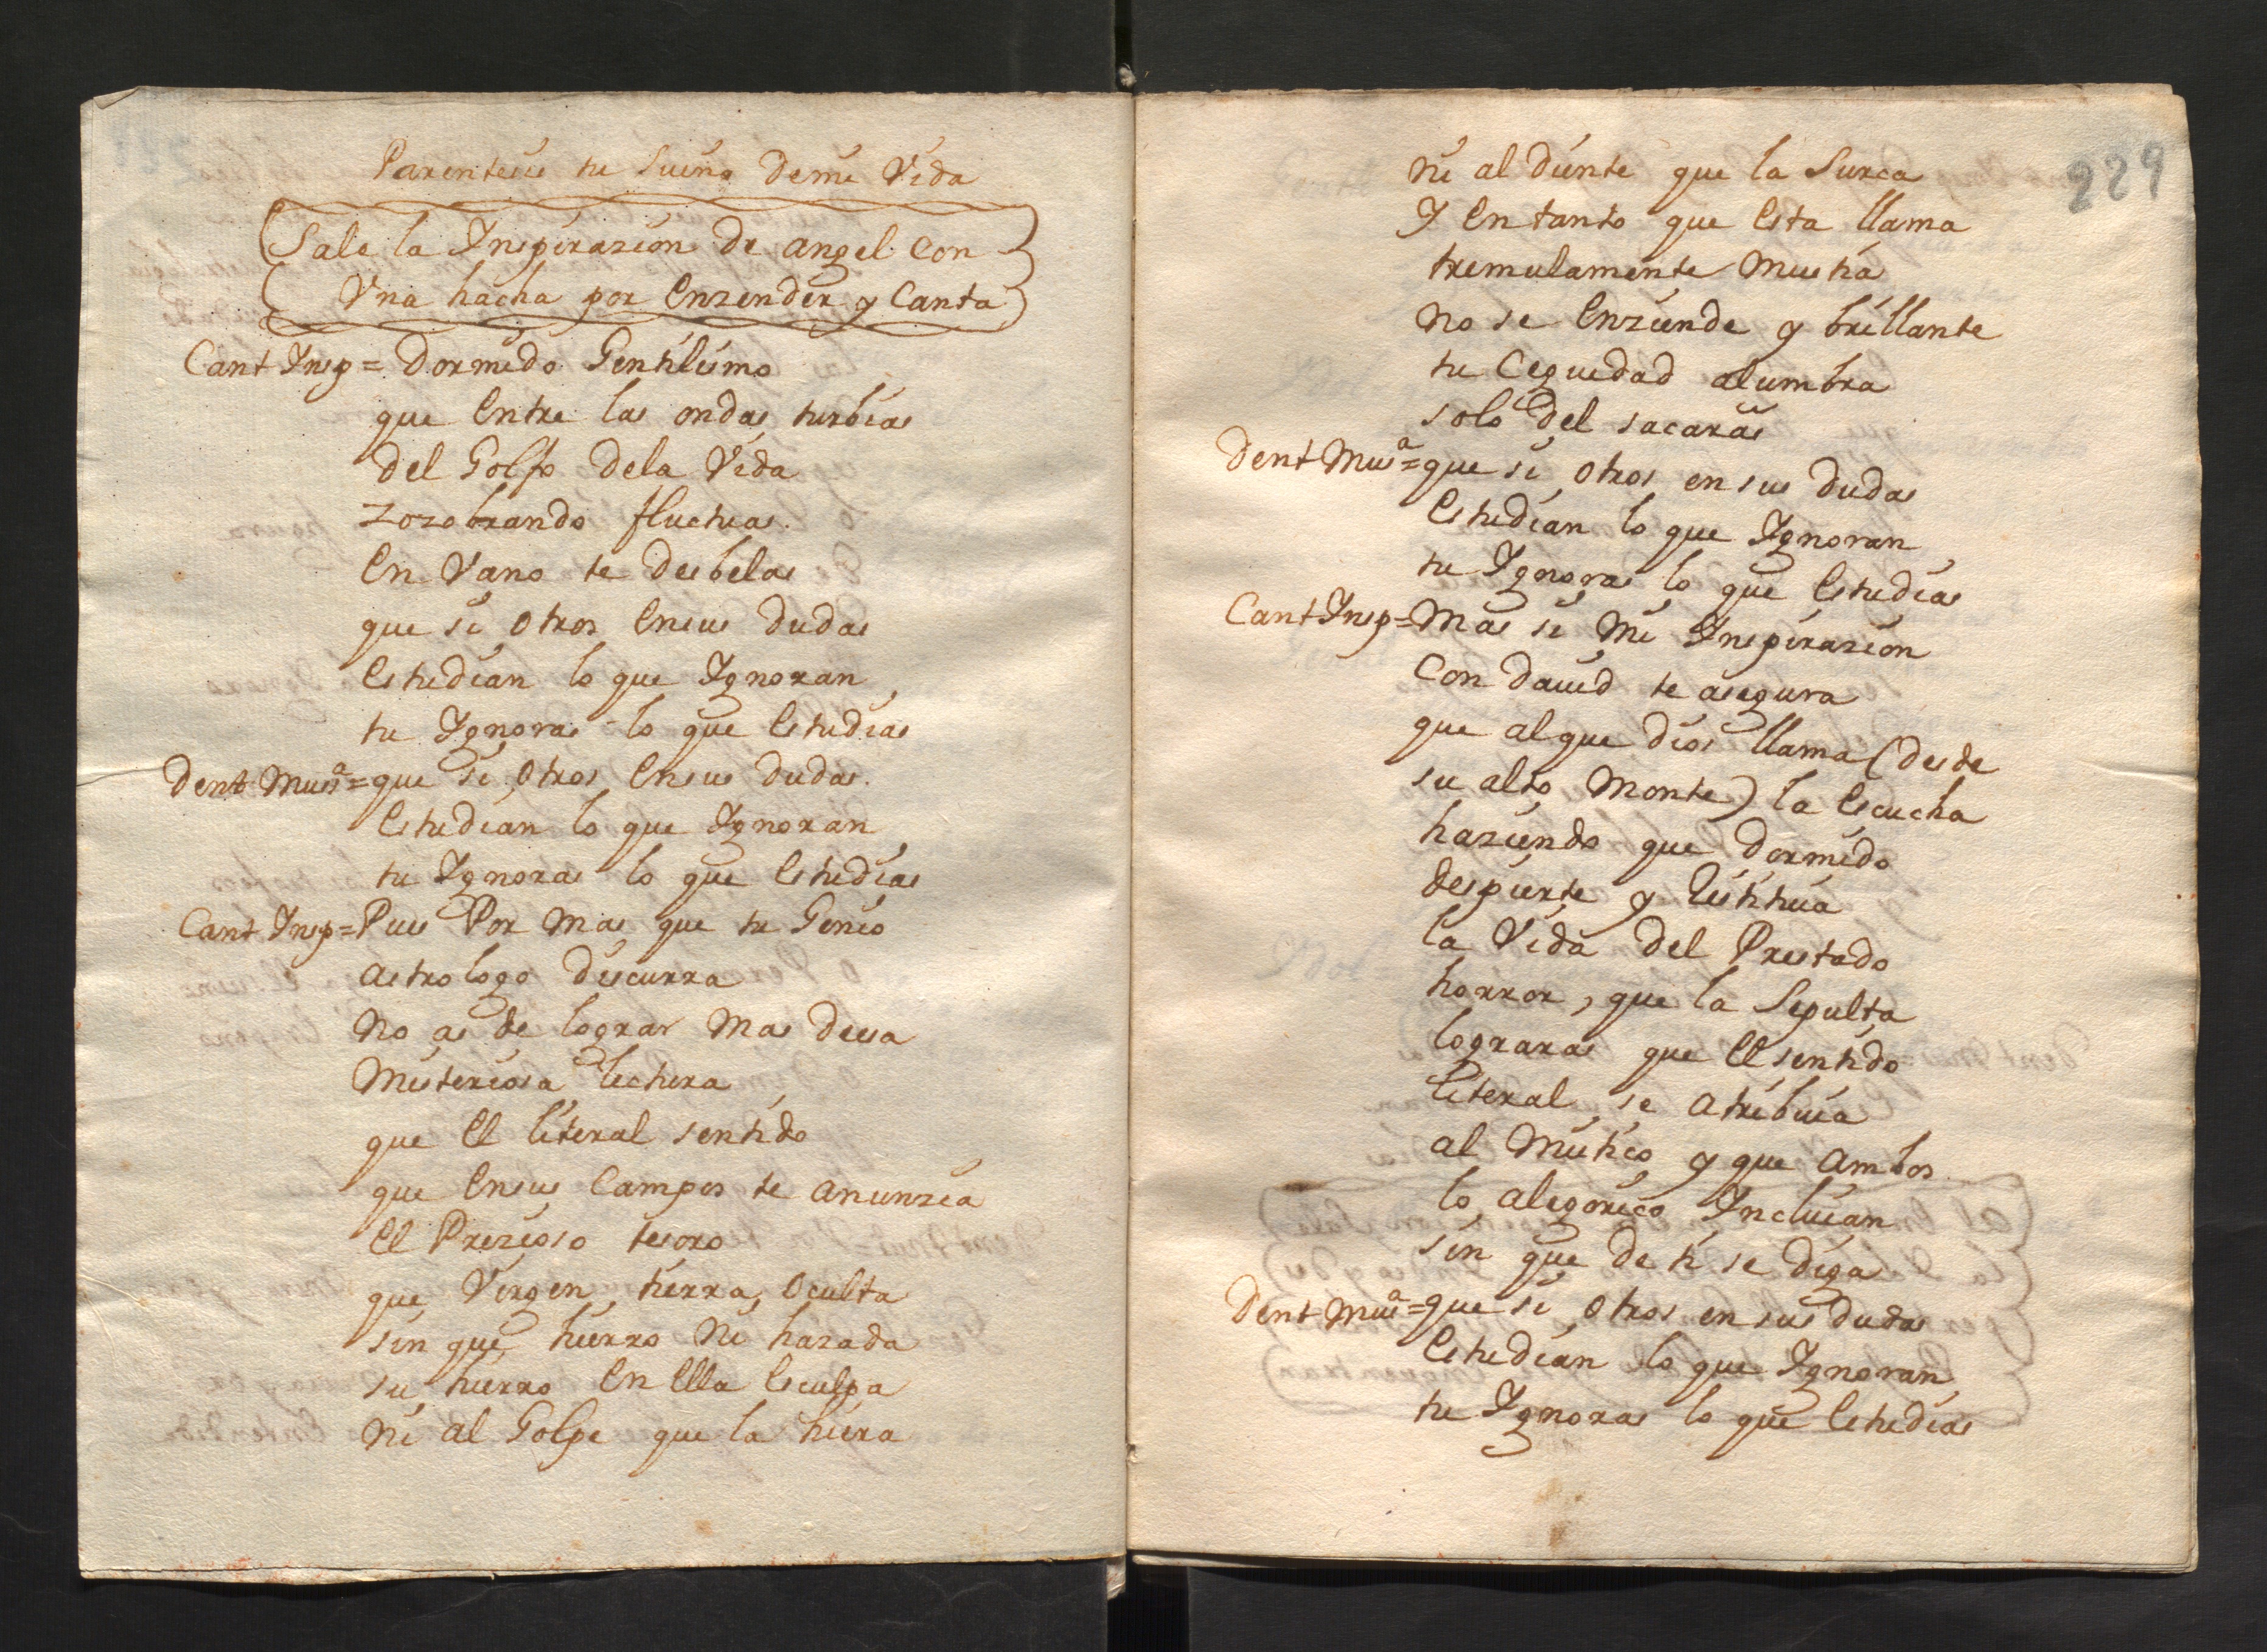 Parentesis tu sueño demi Vida
Sale la Inspirazion de angel con
Vna hacha por enzender y Canta
Cant Insp = Dormido Gentilismo
que entre las ondas turbias
del Golfo dela Vida
zozobrando fluctuas.
en Vano te desbelas
que si otros ensus dudas
estudian lo que Ygnoran
tu Ygnoras lo que estudias
Dent Musª = que si otros ensus dudas.
estudian lo que Ygnoran
tu Ygnoras lo que estudias
Cant Insp = Pues Por mas que tu Genio
astrologo discurra
no as de lograr mas desa
Misteriosa lectura
que el literal sentido
que ensus Campos te anunzia
el Prezioso tesoro
que Virgen tierra oculta
sin que hierro ni hazada
su hierro en ella esculpa
ni al Golpe que la hiera
229
ni al diente que la surca
Y en tanto que esta llama
tremulamente mustia
no se enziende y brillante
tu Ceguedad alumbra
solo del sacaras
Dent Musª = que si otros en sus dudas
estudian lo que Ygnoran
tu Ygnoras lo que estudias
Cant Insp = Mas si mi Inspirazion
Con dauid te asegura
que al que dios llama (desde
su alto monte) la escucha
haziendo que dormido
despierte y restitua
la Vida del Prestado
horror, que la sepulta
lograras que el sentido
literal se atribuia
al Mistico y que ambos
lo alegorico Incluian
sin que de ti se diga
Dent Musª = que si otros en sus dudas
estudian lo que Ygnoran
tu Ygnoras lo que estudias